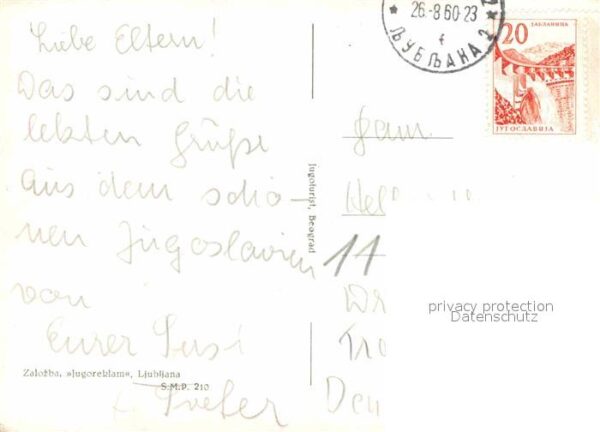 Liebe Eltern!
Das sind die
letzten Grüße
aus dem schö-
nen Jugoslavien
von
Eurer Susi
Založba, »Jugoreklam«, Ljubljana
S.M.P. 210
Jugoturist, Beograd
26.-8 60-23
f
ЉУБЉАНА 2
20
ЈАБЛАНИЦА
ЈУГОСЛАВИЈА
Fam.
11
privacy protection
Datenschutz